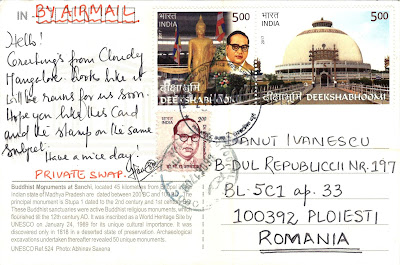 BY AIRMAIL
Hello!
Greetings from Cloudy
Mangalore. Looks like it
will be rains for us soon.
Hope you like this Card
and the stamp on the same
subject.
Have a nice day!
PRIVATE SWAP
Buddhist Monuments at Sanchi, located 45 kilometres from
Indian state of Madhya Pradesh are dated between 200 BC and
principal monument is Stupa 1 dated to the 2nd century and 1st century
These Buddhist sanctuaries were active Buddhist religious monuments, which
flourished till the 12th century AD. It was inscribed as a World Heritage Site by
UNESCO on January 24, 1989 for its unique cultural importance. It was
discovered only in 1818 in a deserted state of preservation. Archaeological
excavations undertaken thereafter revealed 50 unique monuments.
UNESCO Ref 524 Photo: Abhinav Saxena
भारत
INDIA
5.00
दीक्षाभूमि
DEEKSHABHOOMI
भारत
INDIA
2017
5.00
दीक्षाभूमि DEEKSHABHOOMI
2.00
DANUT IVANESCU
B-DUL REPUBLICII NR.197
BL. 5C1 ap. 33
100392 PLOIESTI
ROMANIA